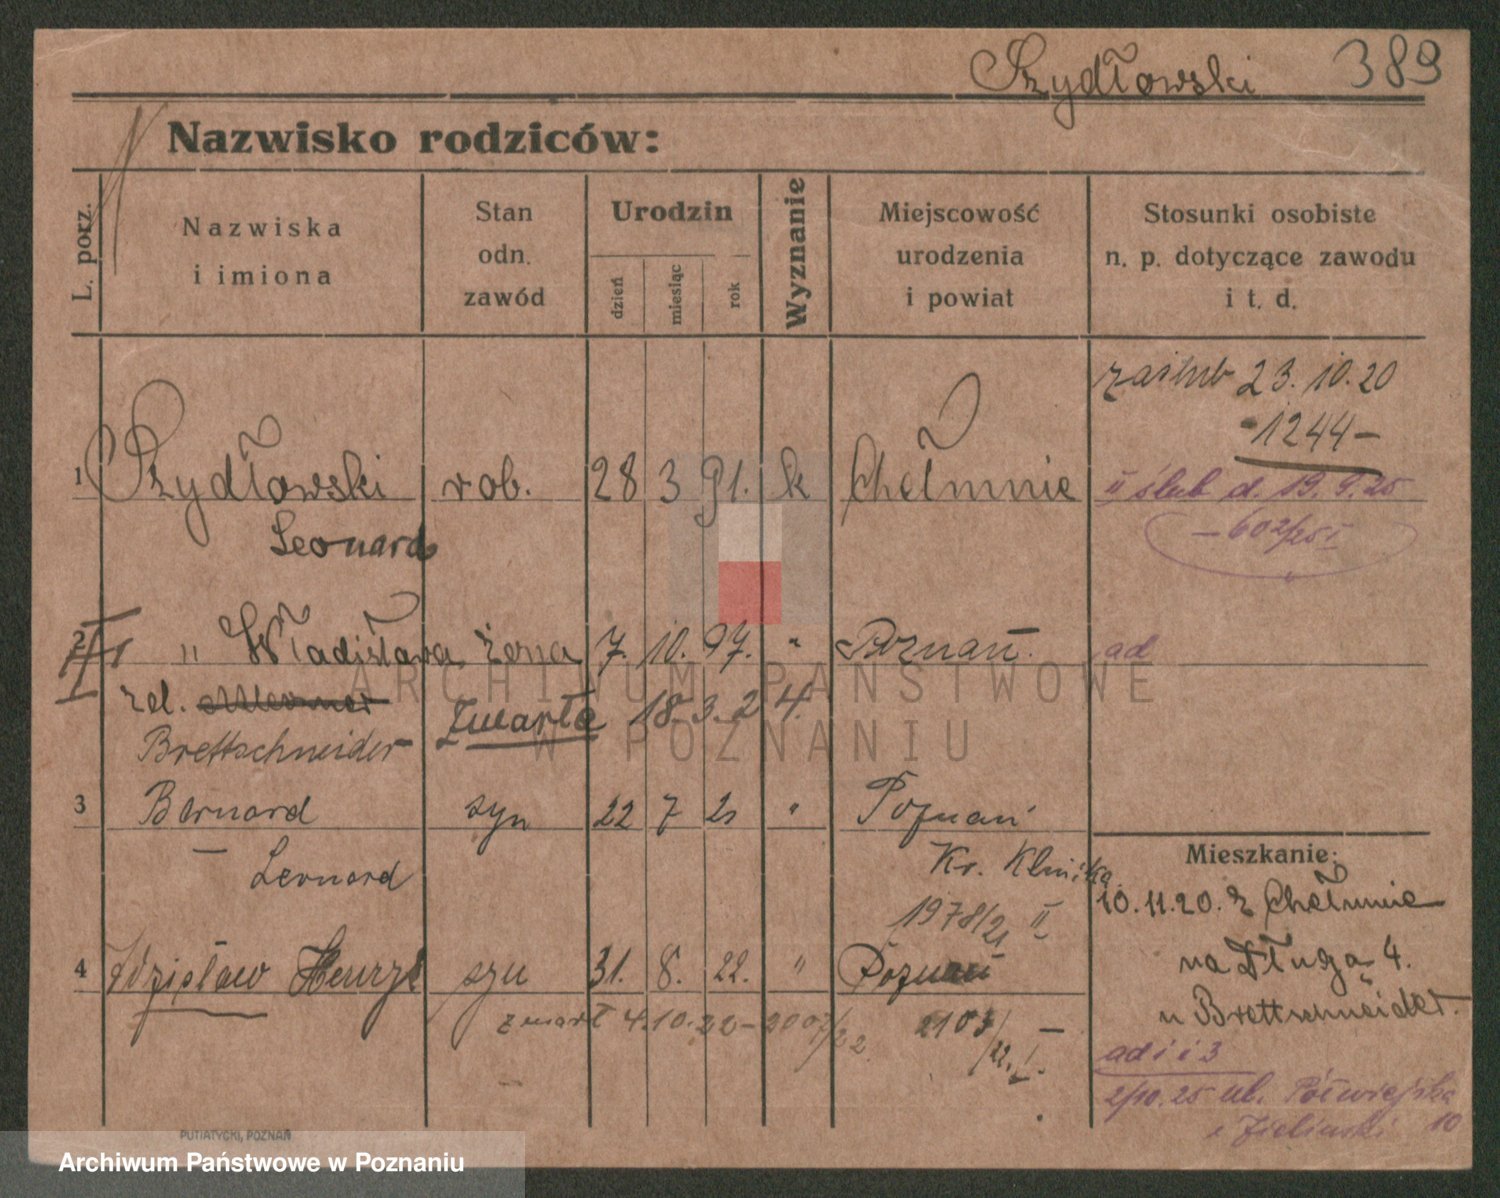 Szydłowski 389
Nazwisko rodziców:
L. porz.
Nazwiska
i imiona
Stan
odn.
zawód
Urodzin
dzień
miesiąc
rok
Wyznanie
Miejscowość
urodzenia
i powiat
Stosunki osobiste
n. p. dotyczące zawodu
i t. d.
zaślub 23. 10. 20
-1244-
1 Szydłowski rob. 28 3 91. k Chełmnie
II ślub d. 19. 9. 25
Leonard
- 602/25 I
2 " Władisława żona 7. 10. 97. " Poznań. ad
zd.
Zmarła 18. 3. 24.
Brettschneider
3 Bernard syn 22 7 21 " Poznań
- Leonard
Kr. Klinika
1978/21 II
4 Zdzisław Henryk syn 31. 8. 22. " Poznań
zmarł 4. 10. 22 - 2007/22 2103/22. I. -
Mieszkanie:
10. 11. 20. z Chełmnie
na Długa 4.
u Brettschneider.
ad 1 i 3
2/10. 25 ul. Półwiejska 10
Zieliński
PUTIATYCKI, POZNAŃ
ARCHIWUM PAŃSTWOWE
W POZNANIU
Archiwum Państwowe w Poznaniu